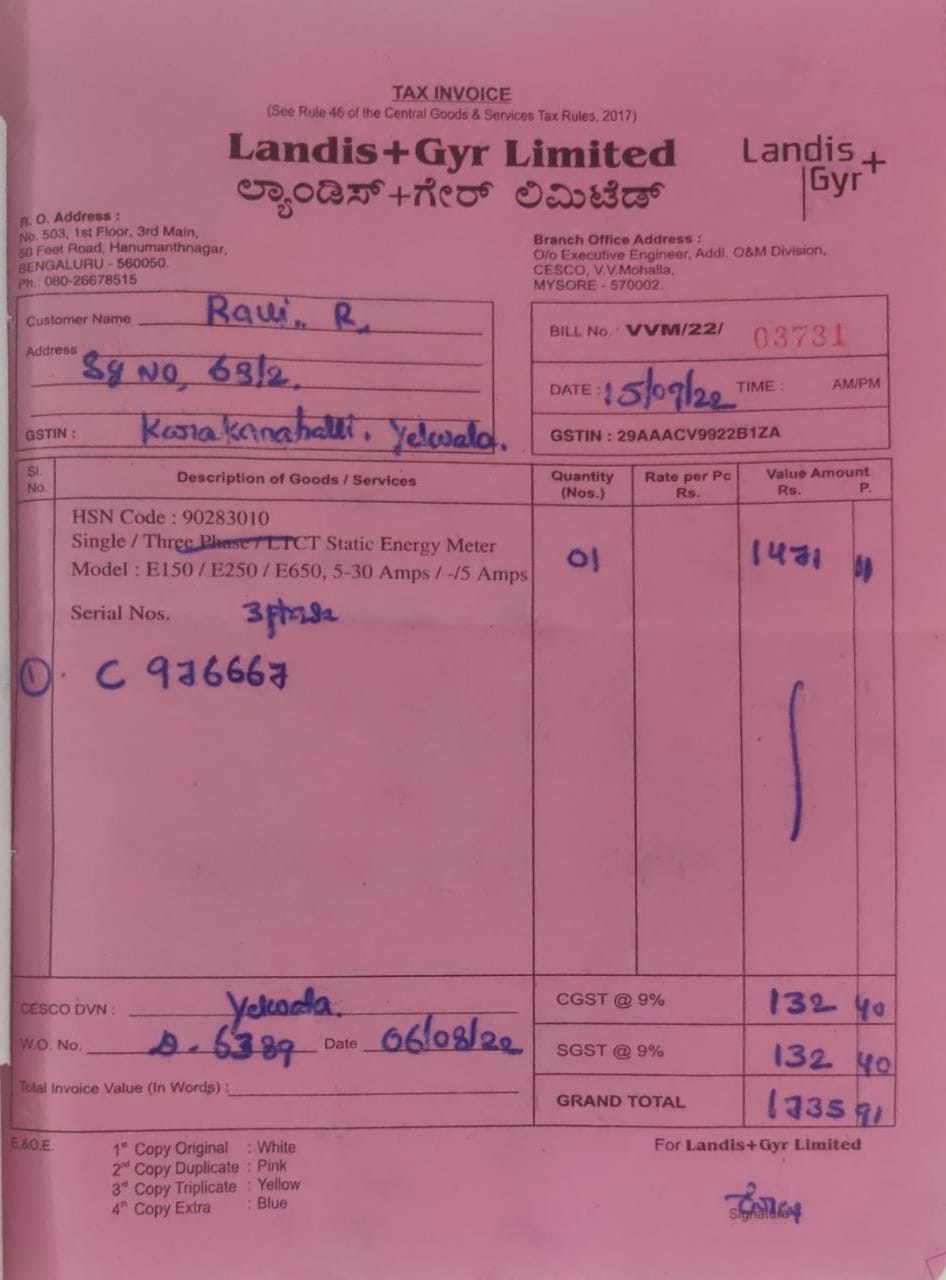 TAX INVOICE
(See Rule 46 of the Central Goods & Services Tax Rules, 2017)
Landis+Gyr Limited
ಲ್ಯಾಂಡಿಸ್+ಗೇರ್ ಲಿಮಿಟೆಡ್
Landis+
Gyr
R. O. Address :
No. 503, 1st Floor, 3rd Main,
50 Feet Road, Hanumanthnagar,
BENGALURU - 560050.
Ph.: 080-26678515
Branch Office Address :
O/o Executive Engineer, Addl. O&M Division,
CESCO, V.V.Mohalla,
MYSORE - 570002.
Customer Name Ravi. R.
Address Sy NO, 68/2.
GSTIN : Yelwala.
BILL No. VVM/22/ 03731
DATE : 15/09/22 TIME : AM/PM
GSTIN : 29AAACV9922B1ZA
Sl. No. Description of Goods / Services Quantity (Nos.) Rate per Pc Rs. Value Amount Rs. P.
HSN Code : 90283010
Single / Three Phase / LTCT Static Energy Meter 01 1471 11
Model : E150 / E250 / E650, 5-30 Amps / -/5 Amps
Serial Nos. 3phase
1. C 976667
CESCO DVN : Yelwala. CGST @ 9% 132 40
W.O. No. D-6389 Date 06/08/22 SGST @ 9% 132 40
Total Invoice Value (In Words) :
GRAND TOTAL 1735 91
E.&O.E. 1st Copy Original : White
2nd Copy Duplicate : Pink
3rd Copy Triplicate : Yellow
4th Copy Extra : Blue
For Landis+Gyr Limited
Signature